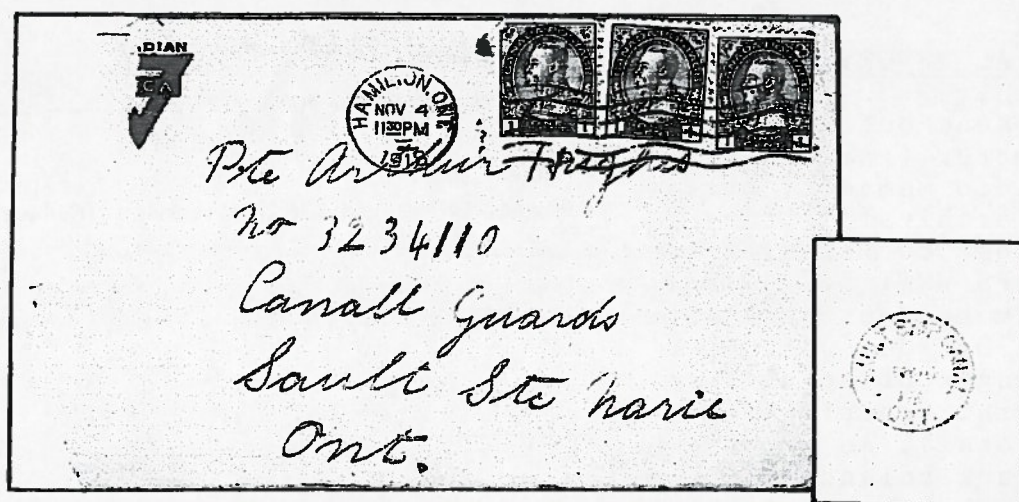 DIAN
CA
HAMILTON, ONT
NOV 4
1130PM
1918
Pte Arthur Hughes
No 3234110
Canall Guards
Sault Ste Marie
Ont.
ONT